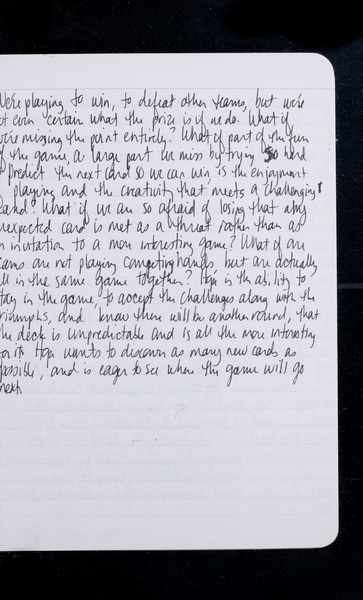 We're playing to win, to defeat other teams, but we're
not even certain what the prize is if we do. What if
we're missing the point entirely? What if part of the fun
of the game, a large part we miss by trying so hard
to predict the next card so we can win, is the enjoyment
playing and the creativity that meets a challenging
card? What if we are so afraid of losing that any
unexpected card is met as a threat rather than as
an invitation to a more interesting game? What if our
teams are not playing competing hands, but are actually
all in the same game together? Hope is the ability to
stay in the game, to accept the challenges along with the
triumphs, and know there will be another round, that
the deck is unpredictable and is all the more interesting
for it. Hope wants to discover as many new cards as
possible, and is eager to see where the game will go
next.